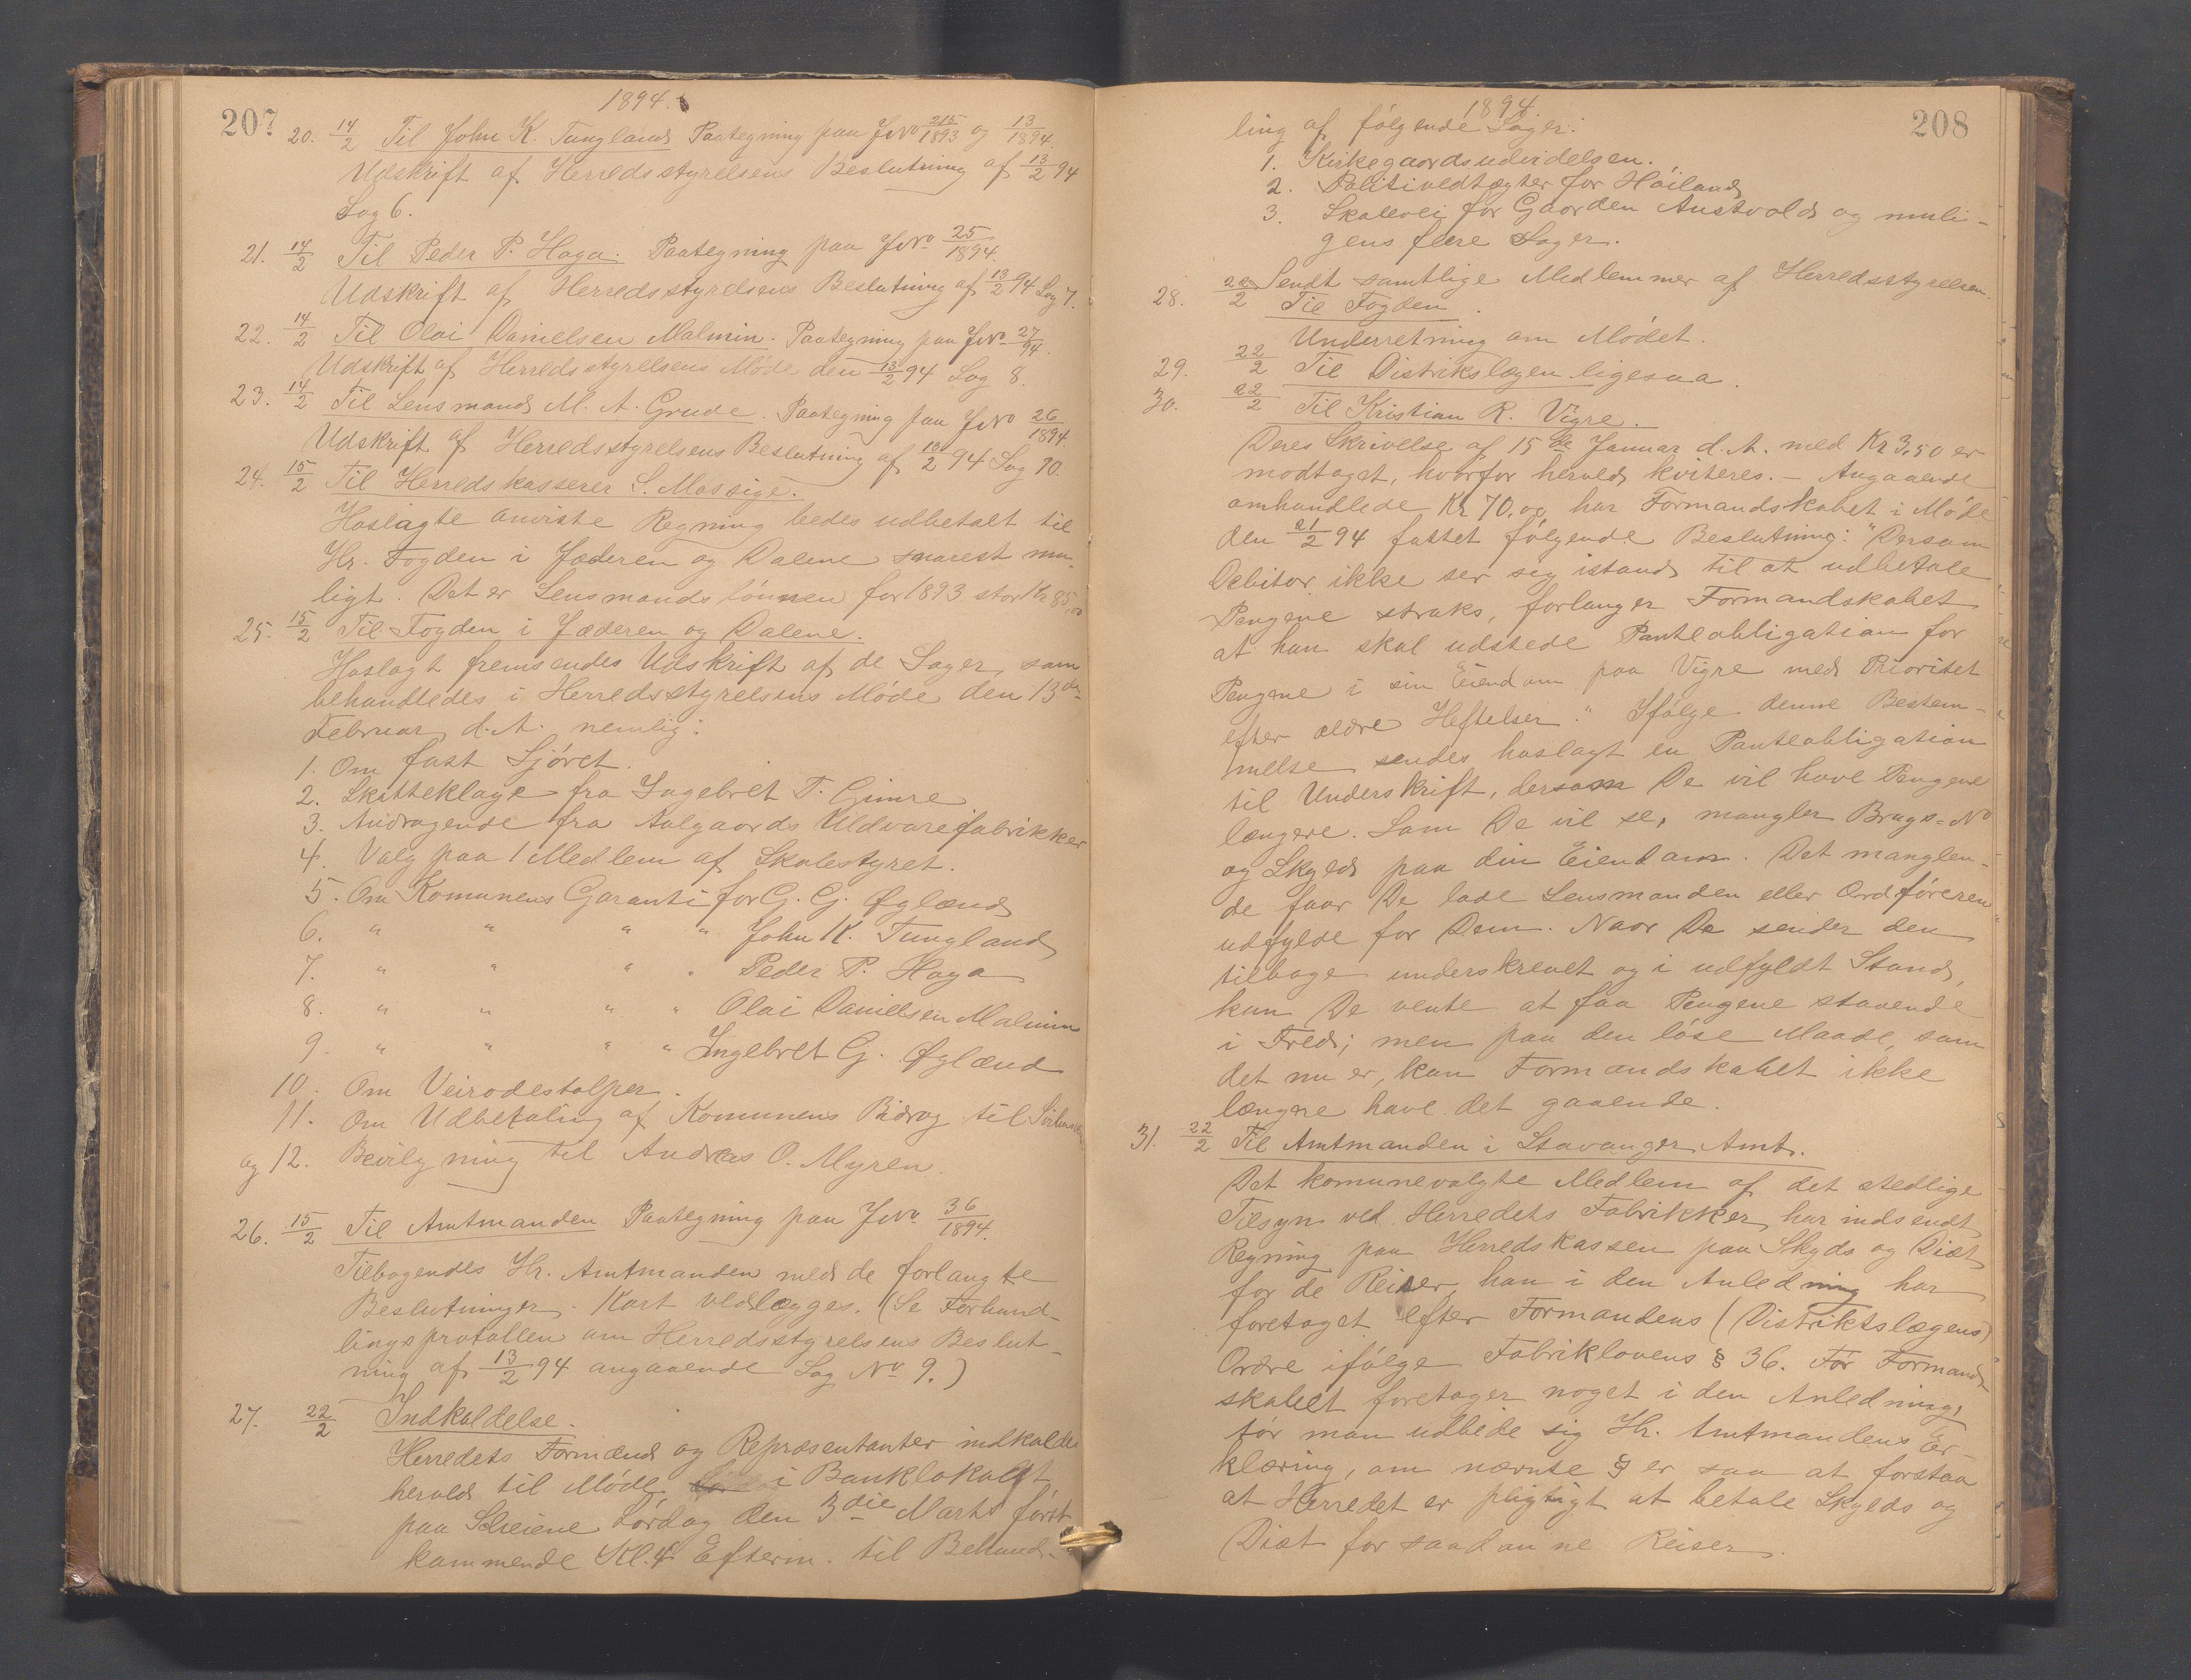 207
1894.
20. 14/2 Til John K. Tungland Paategning paa JNo 215/1893 og 13/1894.
Udskrift af Herredsstyrelsens Beslutning af 13/2 94
Sag 6.
21. 14/2 Til Peder P. Haga. Paategning paa JNo 25/1894.
Udskrift af Herredsstyrelsens Beslutning af 13/2 94 Sag 7.
22. 14/2 Til Olai Danielsen Malmin. Paategning paa JNo 27/94.
Udskrift af Herredsstyrelsens Møde den 13/2 94 Sag 8.
23. 14/2 Til Lensmand M. A. Grude. Paategning paa JNo 26/1894
Udskrift af Herredsstyrelsens Beslutning af 13/2 94 Sag 10.
24. 15/2 Til Herredskasserer S. Mossige.
Hoslagte anviste Regning bedes udbetalt til
Hr. Fogden i Jæderen og Dalene snarest mu-
ligt. Det er Lensmandslønnen for 1893 stor Kr 85,00
25. 15/2 Til Fogden i Jæderen og Dalene.
Hoslagt fremsendes Udskrift af de Sager, som
behandledes i Herredsstyrelsens Møde den 13de
Februar d. A. nemlig:
1. Om fast Sjøret.
2. Skatteklage fra Ingebret T. Gimre
3. Andragende fra Aalgaards Uldvarefabrikker
4. Valg paa 1 Medlem af Skolestyret.
5. Om Komunens Garanti for G. G. Øglænd
6. " " " " John K. Tungland
7. " " " " Peder P. Haga
8. " " " " Olai Danielsen Malmin
9. " " " " Ingebret G. Øglænd
10. Om Veirodestolper.
11. Om Udbetaling af Komunens Bidrag til
og 12. Bevilgning til Andreas O. Myren.
26. 15/2 Til Amtmanden Paategning paa JNo. 36/1894.
Tilbagendes Hr. Amtmanden med de forlangte
Beslutninger. Kart vedlægges. (Se Forhand-
lingsprotollen om Herredsstyrelsens Beslut-
ning af 13/2 94 angaaende Sag No 9.)
27. 22/2 Indkaldelse.
Herredets Formænd og Repræsentanter indkaldes
herved til Møde i Banklokalet
paa Scheiene Lørdag den 3die Marts først
kommende Kl. 4 Efterm. til Behand-
208
1894
ling af følgende Sager:
1. Kirkegaardsudvidelsen.
2. Politivedtægter for Høiland
3. Skolevei for Gaarden Austvold og muli-
gens flere Sager.
Sendt samtlige Medlemmer af Herredsstyrelsen.
28. 22/2 Til Fogden.
Underretning om Mødet.
29. 22/2 Til Distrikslægen ligesaa.
30. 22/2 Til Kristian R. Vigre.
Deres Skrivelse af 15de Januar d. A. med Kr 3,50 er
modtaget, hvorfor herved kviteres. – Angaaende
omhandlede Kr 70,00 har Formandskabet i Møde
den 21/2 94 fattet følgende Beslutning: "Dersom
Debitor ikke ser sig istand til at udbetale
Pengene straks, forlanger Formandskabet
at han skal udstede Panteobligation for
Pengene i sin Eiendom paa Vigre med Prioritet
efter ældre Heftelser." Ifølge denne Bestem-
melse sendes hoslagt en Panteobligation
til Underskrift, dersom De vil have Pengene
længere. Som De vil se, mangler Brugs-No
og Skyld paa din Eiendom. Det manglen-
de faar De lade Lensmanden eller Ordføreren
udfylde for Dem. Naar De sender den
tilbage underskrevet og i udfyldt Stand,
kan De vente at faa Pengene staaende
i Fred; men paa den løse Maade, som
det nu er, kan Formandskabet ikke
længre have det gaaende.
31. 22/2 Til Amtmanden i Stavanger Amt.
Det komunevalgte Medlem af det stedlige
Tilsyn ved Herredets Fabrikker, har indsendt
Regning paa Herredskassen paa Skyds og Diæt
for de Reiser, han i den Anledning har
foretaget efter Formandens (Distriktslægens)
Ordre ifølge Fabriklovens § 36. Før Formand-
skabet foretager noget i den Anledning,
tør man udbede sig Hr. Amtmandens Er-
klæring, om nævnte § er saa at forstaa
at Herredet er pligtigt at betale Skyds og
Diæt for saadanne Reiser.